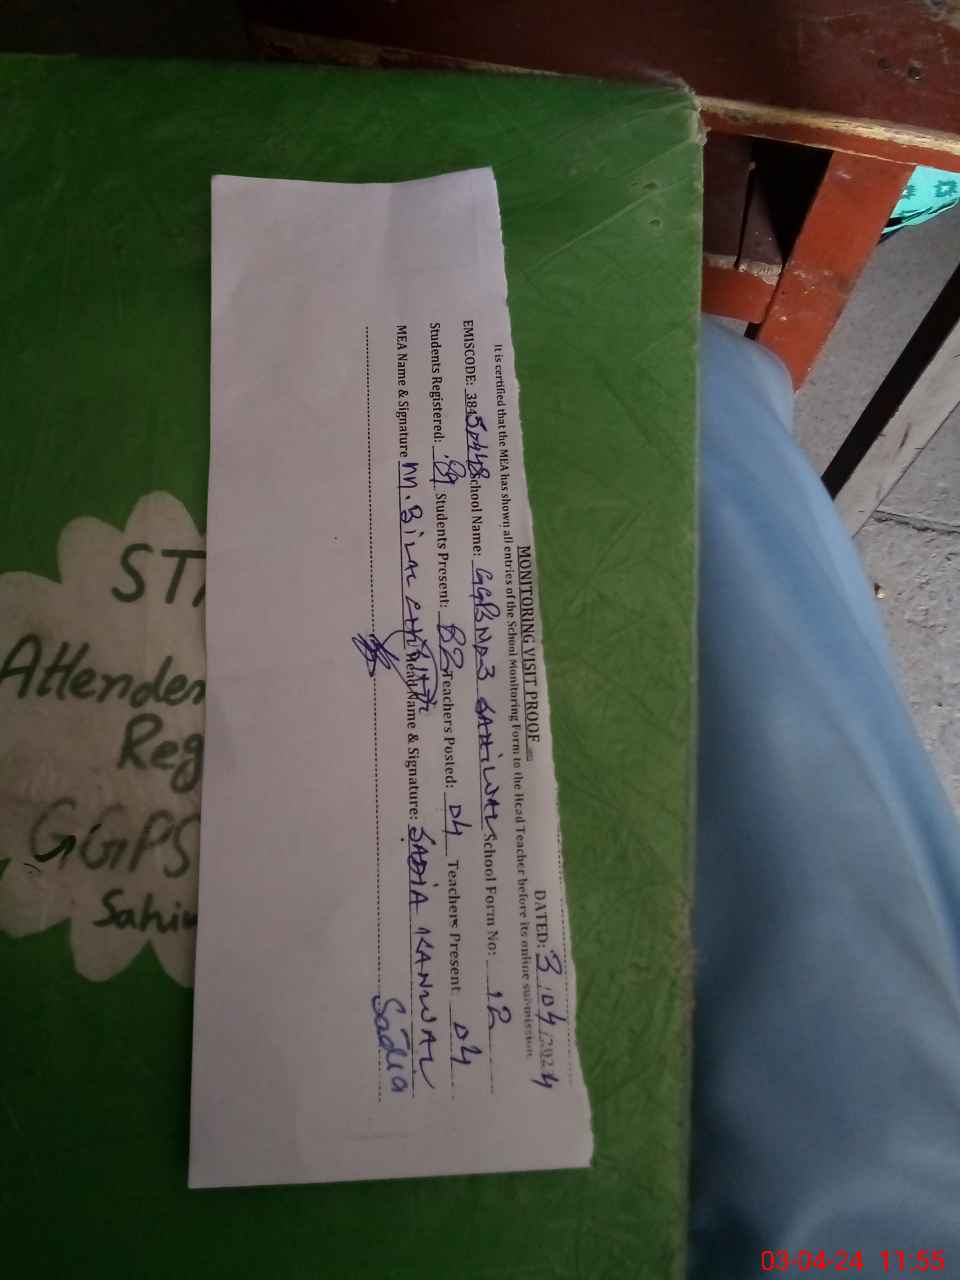 MONITORING VISIT PROOF
DATED: 3.04/2024
It is certified that the MEA has shown all entries of the School Monitoring Form to the Head Teacher before its online submission.
EMISCODE: 384 School Name: SAHIWAL School Form No: 12
Students Registered: 89 Students Present: 82 Teachers Posted: 04 Teachers Present: 04
MEA Name & Signature M. BILAL Head Name & Signature: SADIA KANWAL
Sadia
Attenden
Reg
GGPS
Sahiw
03-04-24 11:55